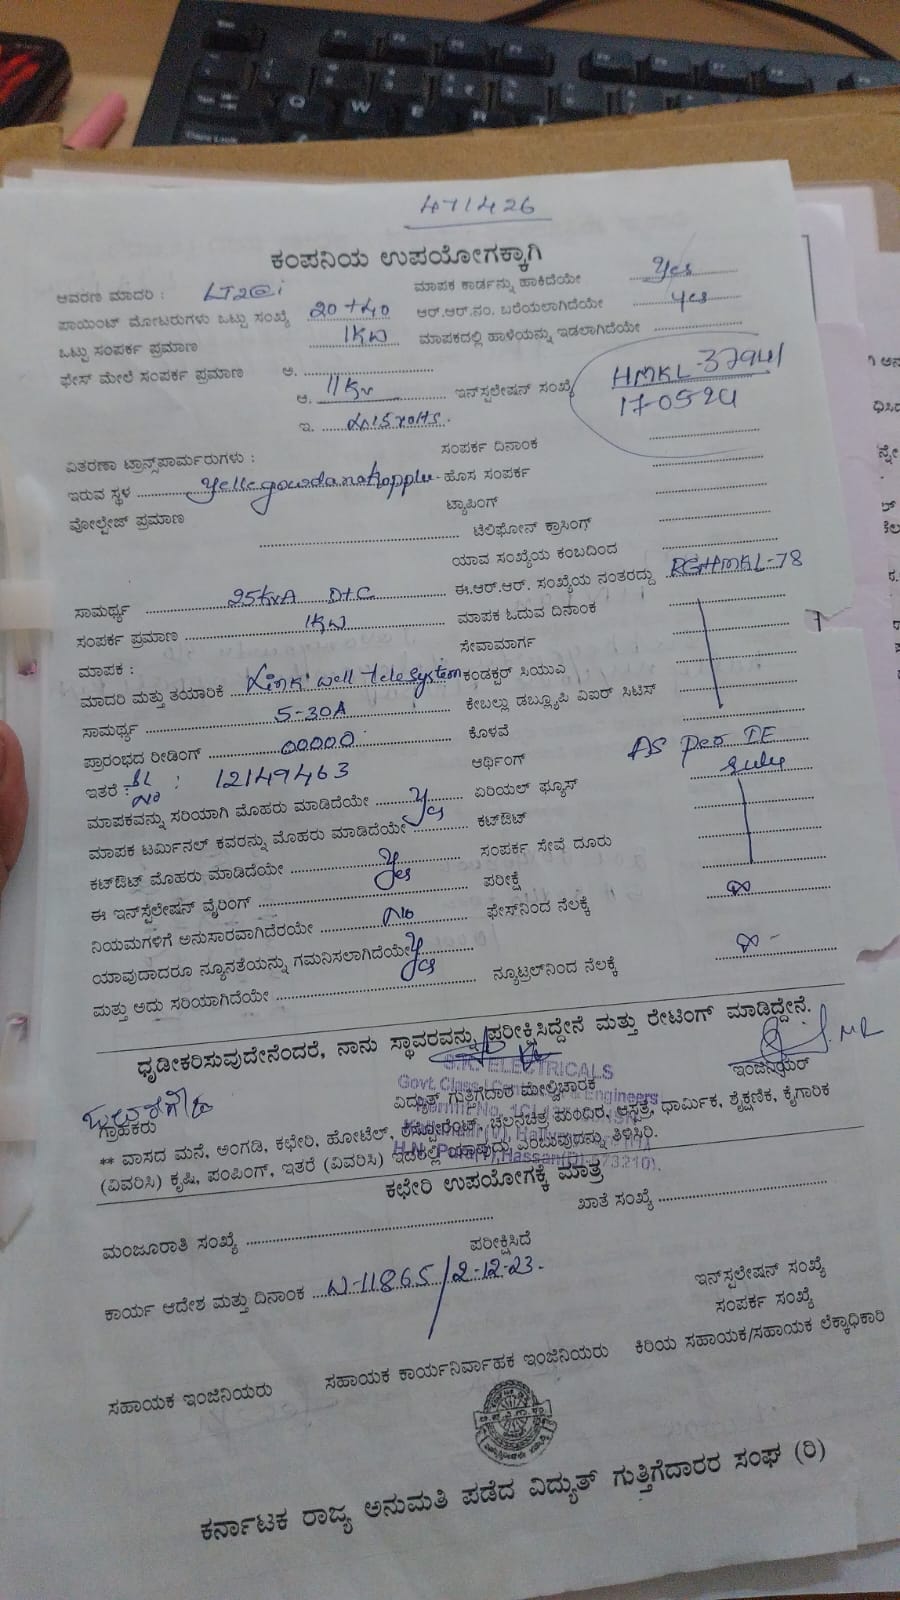 471426
ಕಂಪನಿಯ ಉಪಯೋಗಕ್ಕಾಗಿ
ಆವರಣ ಮಾದರಿ : LT2@i ಮಾಪಕ ಕಾರ್ಡನ್ನು ಹಾಕಿದೆಯೇ Yes
ಪಾಯಿಂಟ್ ಮೋಟರುಗಳು ಒಟ್ಟು ಸಂಖ್ಯೆ 20+40 ಆರ್.ಆರ್.ನಂ. ಬರೆಯಲಾಗಿದೆಯೇ Yes
ಒಟ್ಟು ಸಂಪರ್ಕ ಪ್ರಮಾಣ 1KW ಮಾಪಕದಲ್ಲಿ ಹಾಳೆಯನ್ನು ಇಡಲಾಗಿದೆಯೇ
ಫೇಸ್ ಮೇಲೆ ಸಂಪರ್ಕ ಪ್ರಮಾಣ ಅ.
ಆ. 11Kv ಇನ್‌ಸ್ಟಲೇಷನ್ ಸಂಖ್ಯೆ HMKL-37941
17-05-24
ಇ. 415 volts.
ಸಂಪರ್ಕ ದಿನಾಂಕ
ವಿತರಣಾ ಟ್ರಾನ್ಸ್‌ಪಾರ್ಮರುಗಳು :
ಇರುವ ಸ್ಥಳ Yellegowdanakopplu ಹೊಸ ಸಂಪರ್ಕ
ವೋಲ್ಟೇಜ್ ಪ್ರಮಾಣ ಟ್ಯಾಪಿಂಗ್
ಟೆಲಿಫೋನ್ ಕ್ರಾಸಿಂಗ್
ಯಾವ ಸಂಖ್ಯೆಯ ಕಂಬದಿಂದ
ಸಾಮರ್ಥ್ಯ 25KVA DTC ಈ.ಆರ್.ಆರ್. ಸಂಖ್ಯೆಯ ನಂತರದ್ದು RGHMKL-78
ಸಂಪರ್ಕ ಪ್ರಮಾಣ 1KW ಮಾಪಕ ಓದುವ ದಿನಾಂಕ
ಮಾಪಕ : ಸೇವಾಮಾರ್ಗ
ಮಾದರಿ ಮತ್ತು ತಯಾರಿಕೆ Link well telesystem ಕಂಡಕ್ಟರ್ ಸಿಯುವಿ
ಸಾಮರ್ಥ್ಯ 5-30A ಕೇಬಲ್ಲು ಡಬ್ಲ್ಯೂಪಿ ಎಐಆರ್ ಸಿಟಿಸ್
ಪ್ರಾರಂಭದ ರೀಡಿಂಗ್ 00000 ಕೊಳವೆ
ಇತರೆ : SL No : 12149463 ಆರ್ಥಿಂಗ್ AS per IE rule
ಮಾಪಕವನ್ನು ಸರಿಯಾಗಿ ಮೊಹರು ಮಾಡಿದೆಯೇ Yes ಏರಿಯಲ್ ಫ್ಯೂಸ್
ಮಾಪಕ ಟರ್ಮಿನಲ್ ಕವರನ್ನು ಮೊಹರು ಮಾಡಿದೆಯೇ ಕಟ್‌ಔಟ್
ಕಟ್‌ಔಟ್ ಮೊಹರು ಮಾಡಿದೆಯೇ Yes ಸಂಪರ್ಕ ಸೇವೆ ದೂರು
ಈ ಇನ್‌ಸ್ಟಲೇಷನ್ ವೈರಿಂಗ್ ಪರೀಕ್ಷೆ
ನಿಯಮಗಳಿಗೆ ಅನುಸಾರವಾಗಿದೆರಯೇ No ಫೇಸ್‌ನಿಂದ ನೆಲಕ್ಕೆ
ಯಾವುದಾದರೂ ನ್ಯೂನತೆಯನ್ನು ಗಮನಿಸಲಾಗಿದೆಯೇ Yes
ಮತ್ತು ಅದು ಸರಿಯಾಗಿದೆಯೇ ನ್ಯೂಟ್ರಲ್‌ನಿಂದ ನೆಲಕ್ಕೆ
ಧೃಡೀಕರಿಸುವುದೇನೆಂದರೆ, ನಾನು ಸ್ಥಾವರವನ್ನು ಪರೀಕ್ಷಿಸಿದ್ದೇನೆ ಮತ್ತು ರೇಟಿಂಗ್ ಮಾಡಿದ್ದೇನೆ.
S.K. ELECTRICALS
ಗ್ರಾಹಕರು ವಿದ್ಯುತ್ ಗುತ್ತಿಗೆದಾರ ಮೇಲ್ವಿಚಾರಕ ಇಂಜಿನಿಯರ್
** ವಾಸದ ಮನೆ, ಅಂಗಡಿ, ಕಛೇರಿ, ಹೋಟೆಲ್, ರೆಸ್ಟೋರೆಂಟ್, ಚಲನಚಿತ್ರ ಮಂದಿರ, ಆಸ್ಪತ್ರೆ, ಧಾರ್ಮಿಕ, ಶೈಕ್ಷಣಿಕ, ಕೈಗಾರಿಕ
(ವಿವರಿಸಿ) ಕೃಷಿ, ಪಂಪಿಂಗ್, ಇತರೆ (ವಿವರಿಸಿ) ಇದರಲ್ಲಿ ಯಾವುದು ಎಂಬುವುದನ್ನು ತಿಳಿಸಿರಿ.
ಕಛೇರಿ ಉಪಯೋಗಕ್ಕೆ ಮಾತ್ರ
ಮಂಜೂರಾತಿ ಸಂಖ್ಯೆ ಖಾತೆ ಸಂಖ್ಯೆ
ಪರೀಕ್ಷಿಸಿದೆ
ಕಾರ್ಯ ಆದೇಶ ಮತ್ತು ದಿನಾಂಕ W-11865/2-12-23. ಇನ್‌ಸ್ಟಲೇಷನ್ ಸಂಖ್ಯೆ
ಸಂಪರ್ಕ ಸಂಖ್ಯೆ
ಸಹಾಯಕ ಇಂಜಿನಿಯರು ಸಹಾಯಕ ಕಾರ್ಯನಿರ್ವಾಹಕ ಇಂಜಿನಿಯರು ಕಿರಿಯ ಸಹಾಯಕ/ಸಹಾಯಕ ಲೆಕ್ಕಾಧಿಕಾರಿ
ಕರ್ನಾಟಕ ರಾಜ್ಯ ಅನುಮತಿ ಪಡೆದ ವಿದ್ಯುತ್ ಗುತ್ತಿಗೆದಾರರ ಸಂಘ (ರಿ)